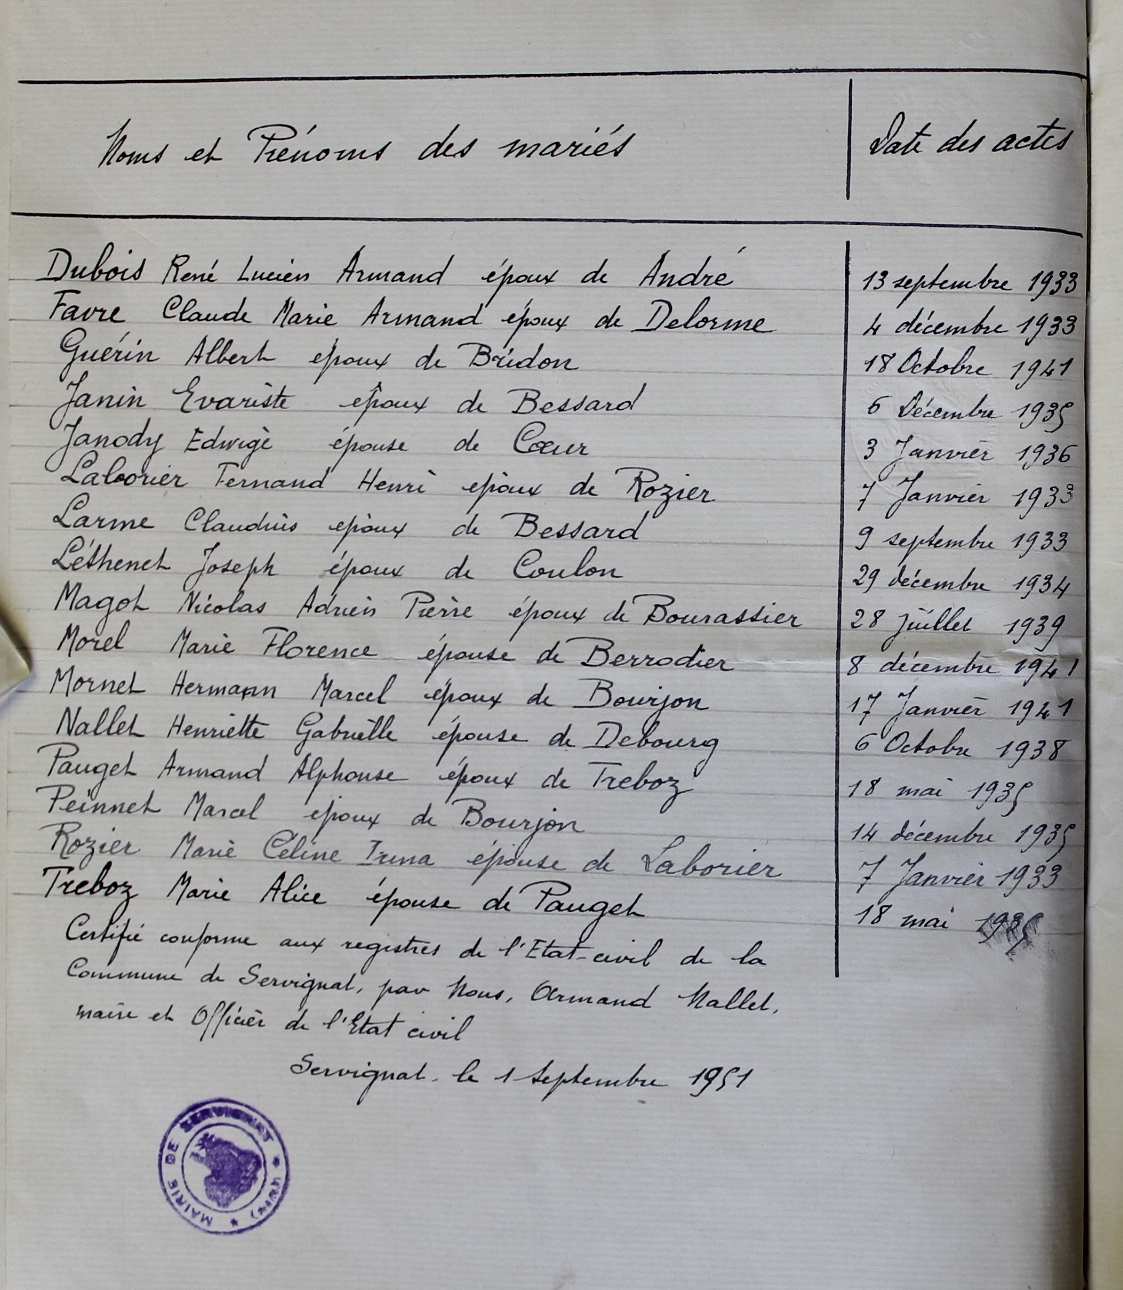 Noms et Prénoms des mariés Date des actes
Dubois René Lucien Armand époux de André 13 septembre 1933
Favre Claude Marie Armand époux de Delorme 4 décembre 1933
Guérin Albert époux de Bridon 18 Octobre 1941
Janin Evariste époux de Bessard 6 Décembre 1935
Janody Edwige épouse de Cœur 3 Janvier 1936
Laborier Fernand Henri époux de Rozier 7 Janvier 1933
Larme Claudius époux de Bessard 9 septembre 1933
Léthenet Joseph époux de Coulon 29 décembre 1934
Magot Nicolas Adrien Pierre époux de Bourassier 28 juillet 1939
Morel Marie Florence épouse de Berrodier 8 décembre 1941
Mornet Hermann Marcel époux de Bourjon 17 Janvier 1941
Nallet Henriette Gabrielle épouse de Debourg 6 Octobre 1938
Pauget Armand Alphonse époux de Treboz 18 mai 1935
Peinnet Marcel époux de Bourjon 14 décembre 1935
Rozier Marie Céline Irma épouse de Laborier 7 Janvier 1933
Treboz Marie Alice épouse de Pauget 18 mai 1935
Certifié conforme aux registres de l'Etat-civil de la
Commune de Servignat, par Nous, Armand Nallet,
maire et Officier de l'Etat civil
Servignat, le 1 Septembre 1951
MAIRIE DE SERVIGNAT * (AIN) *